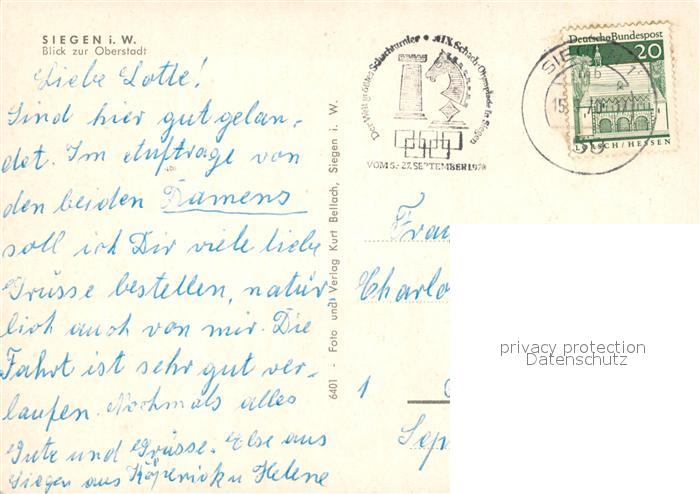 SIEGEN i. W.
Blick zur Oberstadt
Liebe Lotte!
Sind hier gut gelan-
det. Im Auftrage von
den beiden Damens
soll ich Dir viele liebe
Grüsse bestellen, natür
lich auch von mir. Die
Fahrt ist sehr gut ver-
laufen. Nochmals alles
Gute und Grüsse. Else aus
Siegen aus Köpenick u Helene
6401 - Foto und Verlag Kurt Bellach, Siegen i. W.
Der Welt größtes Schachturnier • XIX. Schach-Olympiade in Siegen
VOM 5.-27. SEPTEMBER 1970
SIE
Deutsche Bundespost
20
LORSCH/HESSEN
Frau
Charlo
1
privacy protection
Datenschutz